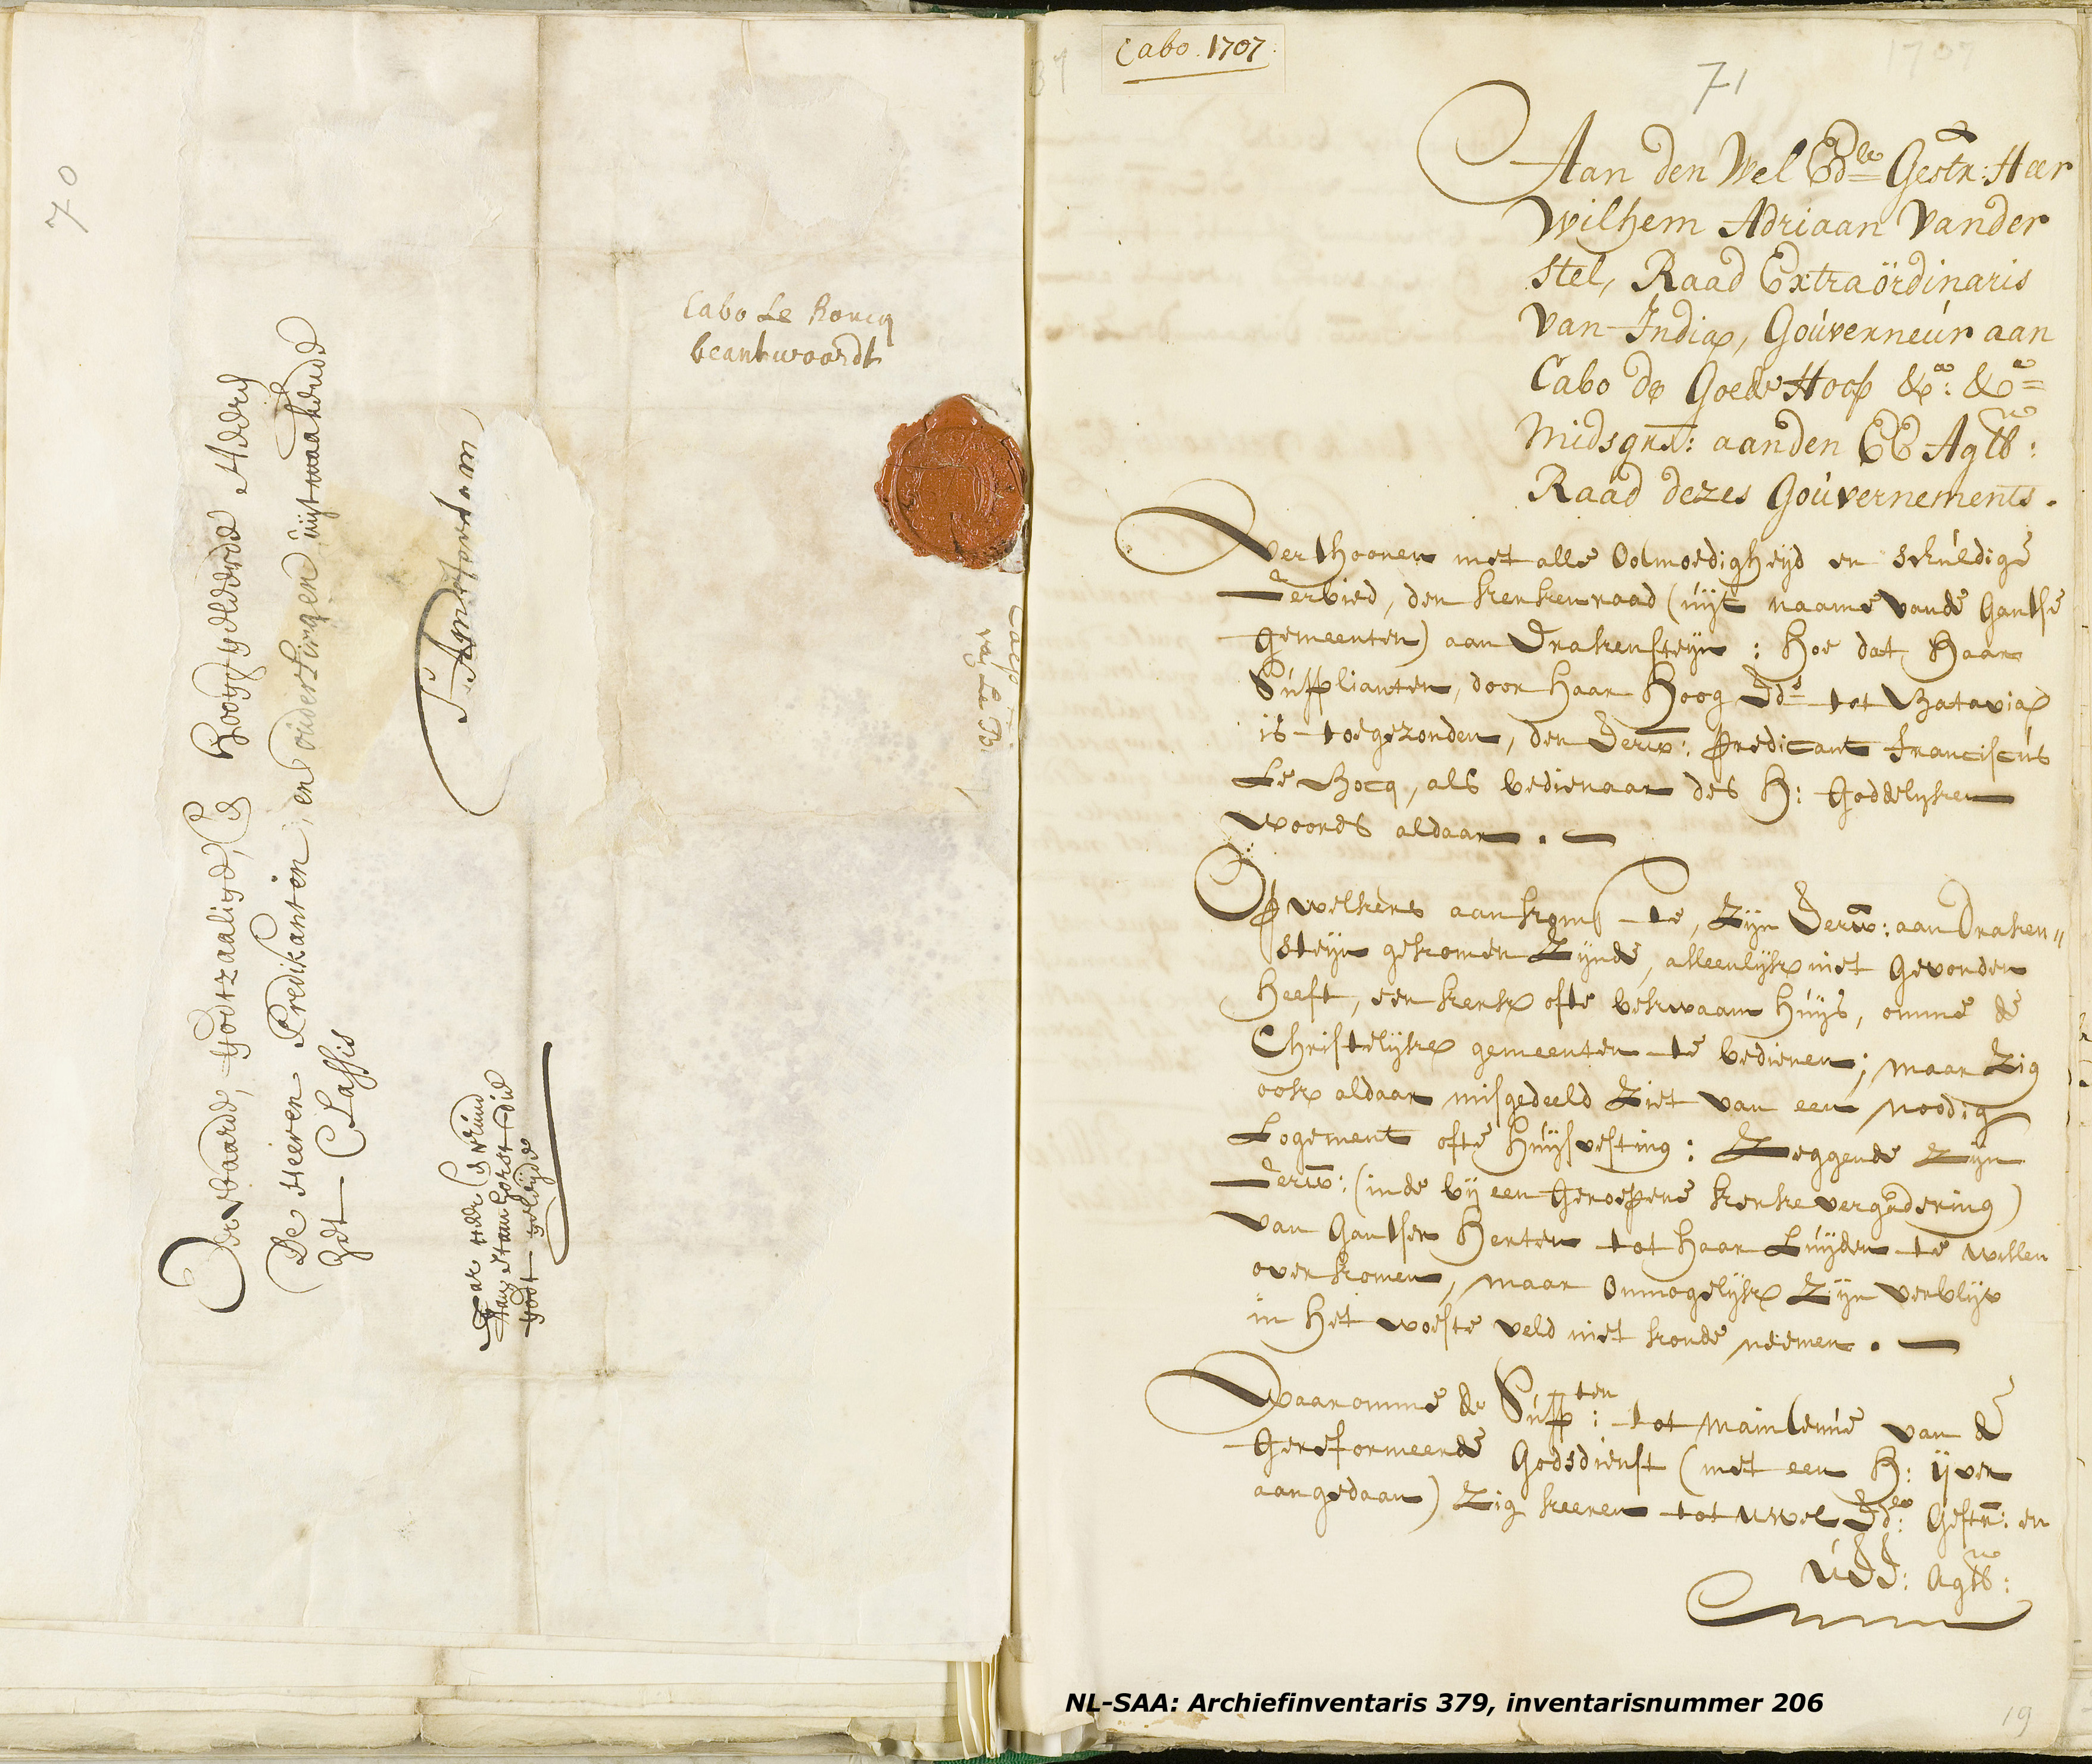 70
Eerwaarde, Godtzaalige, en Hooggeleerde Heeren
De Heeren Predikanten, en ouderlingen uijtmaakende
Het Classis
T'Amsterdam
Door een Vriend
Godt geleijde
Cabo Le Boucq
beantwoordt
Caep
van Le B.
Cabo. 1707.
71
1707
Aan den Wel Edle Gestr: Heer
Wilhem Adriaan Vander
Stel, Raad Extraördinaris
Van India, Goúverneúr aan
Cabo de Goede Hoop &a: &a
Midsgrs: aanden EE Agtb:
Raad dezes Goúvernements.
Verthoonen met alle Ootmoedigheijd en schúldige
Eerbied, den kerkenraad (úijt naame vande Gantse
gemeenten) aan Drakensteijn: hoe dat haar
Súpplianten, door haar Hoog Eds tot Batavia
is toegezonden, den Eerw: predicant Franciscús
Le Bocq, als bedienaar des H: Goddelijken
woords aldaar.
Op welkers aankomste, Zijn Eerw: aan Draken„
steijn gekomen Zijnde, alleenlijk niet gevonden
heeft, een kerk ofte bekwaam húijs, omme de
Christelijke gemeenten te bedienen; maar Zig
ook aldaar misgedeeld Ziet van een noodig
Logement ofte húijsvesting: Zeggende Zijn
Eerw: (inde bij een Geroepene kerke vergadering)
van Gantser Herten tot haar Lúijden te willen
overkomen, maar onmogelijk Zijn verblijv
in het woeste veld niet konde neemen.
Waaromme de Súppten: tot maintenúe van de
Gereformeerde Godsdienst (met een H: ijver
aangedaan) Zig keeren tot uwel Ede: Gestr: en
úEE: Agtb:
NL-SAA: Archiefinventaris 379, inventarisnummer 206
19